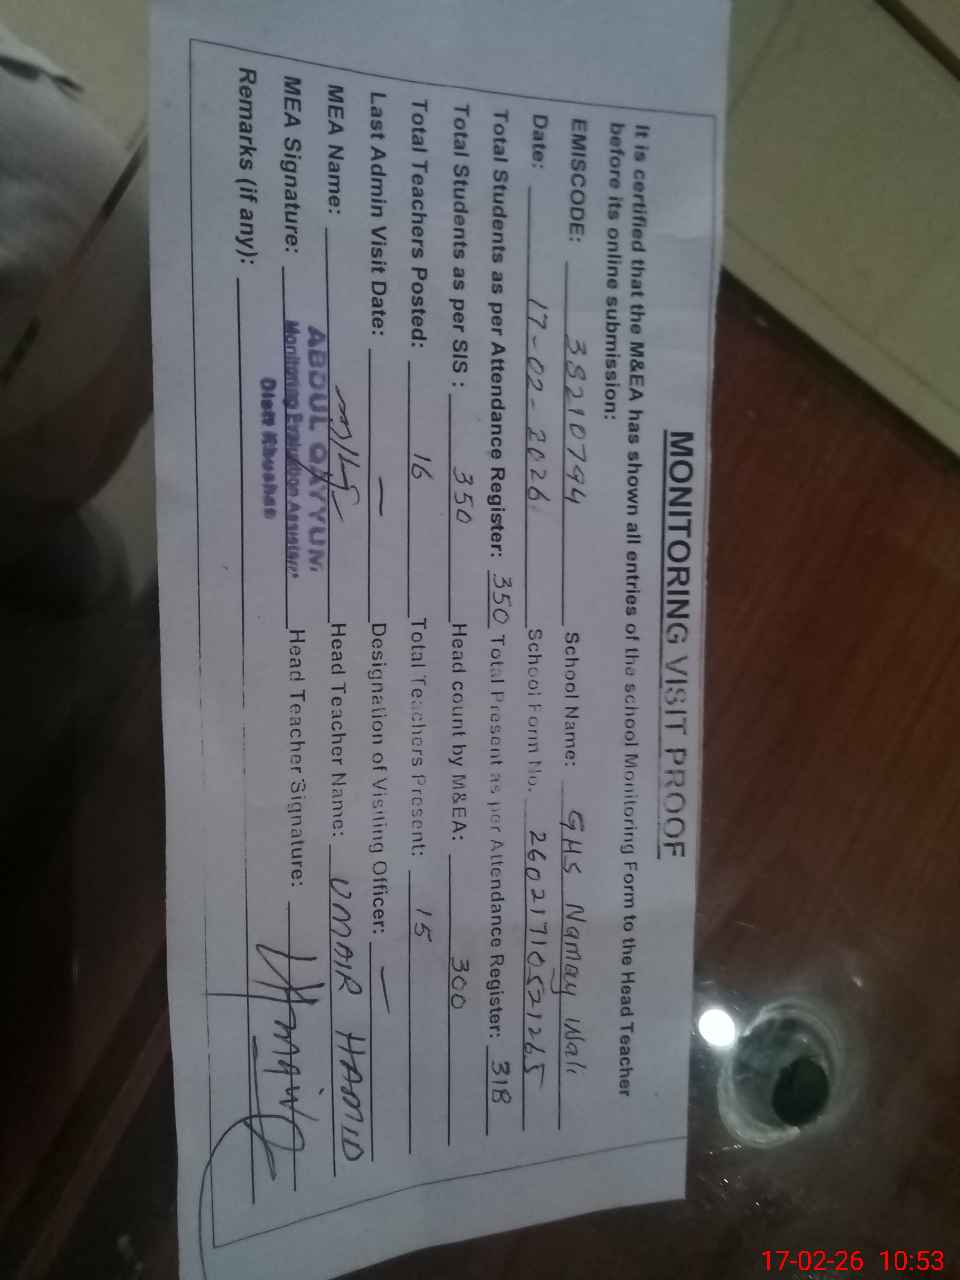 MONITORING VISIT PROOF
It is certified that the M&EA has shown all entries of the school Monitoring Form to the Head Teacher
before its online submission:
EMISCODE: 38210794 School Name: GHS Namay Wali
Date: 17-02-2026 School Form No. 26021710521265
Total Students as per Attendance Register: 350 Total Present as per Attendance Register: 318
Total Students as per SIS : 350 Head count by M&EA: 300
Total Teachers Posted: 16 Total Teachers Present: 15
Last Admin Visit Date: — Designation of Visiting Officer: —
MEA Name: Head Teacher Name: UMAIR HAMID
MEA Signature: ABDUL QAYYUM Head Teacher Signature:
Monitoring Evaluation Assistant
Distt Khushab
Remarks (if any):
17-02-26 10:53